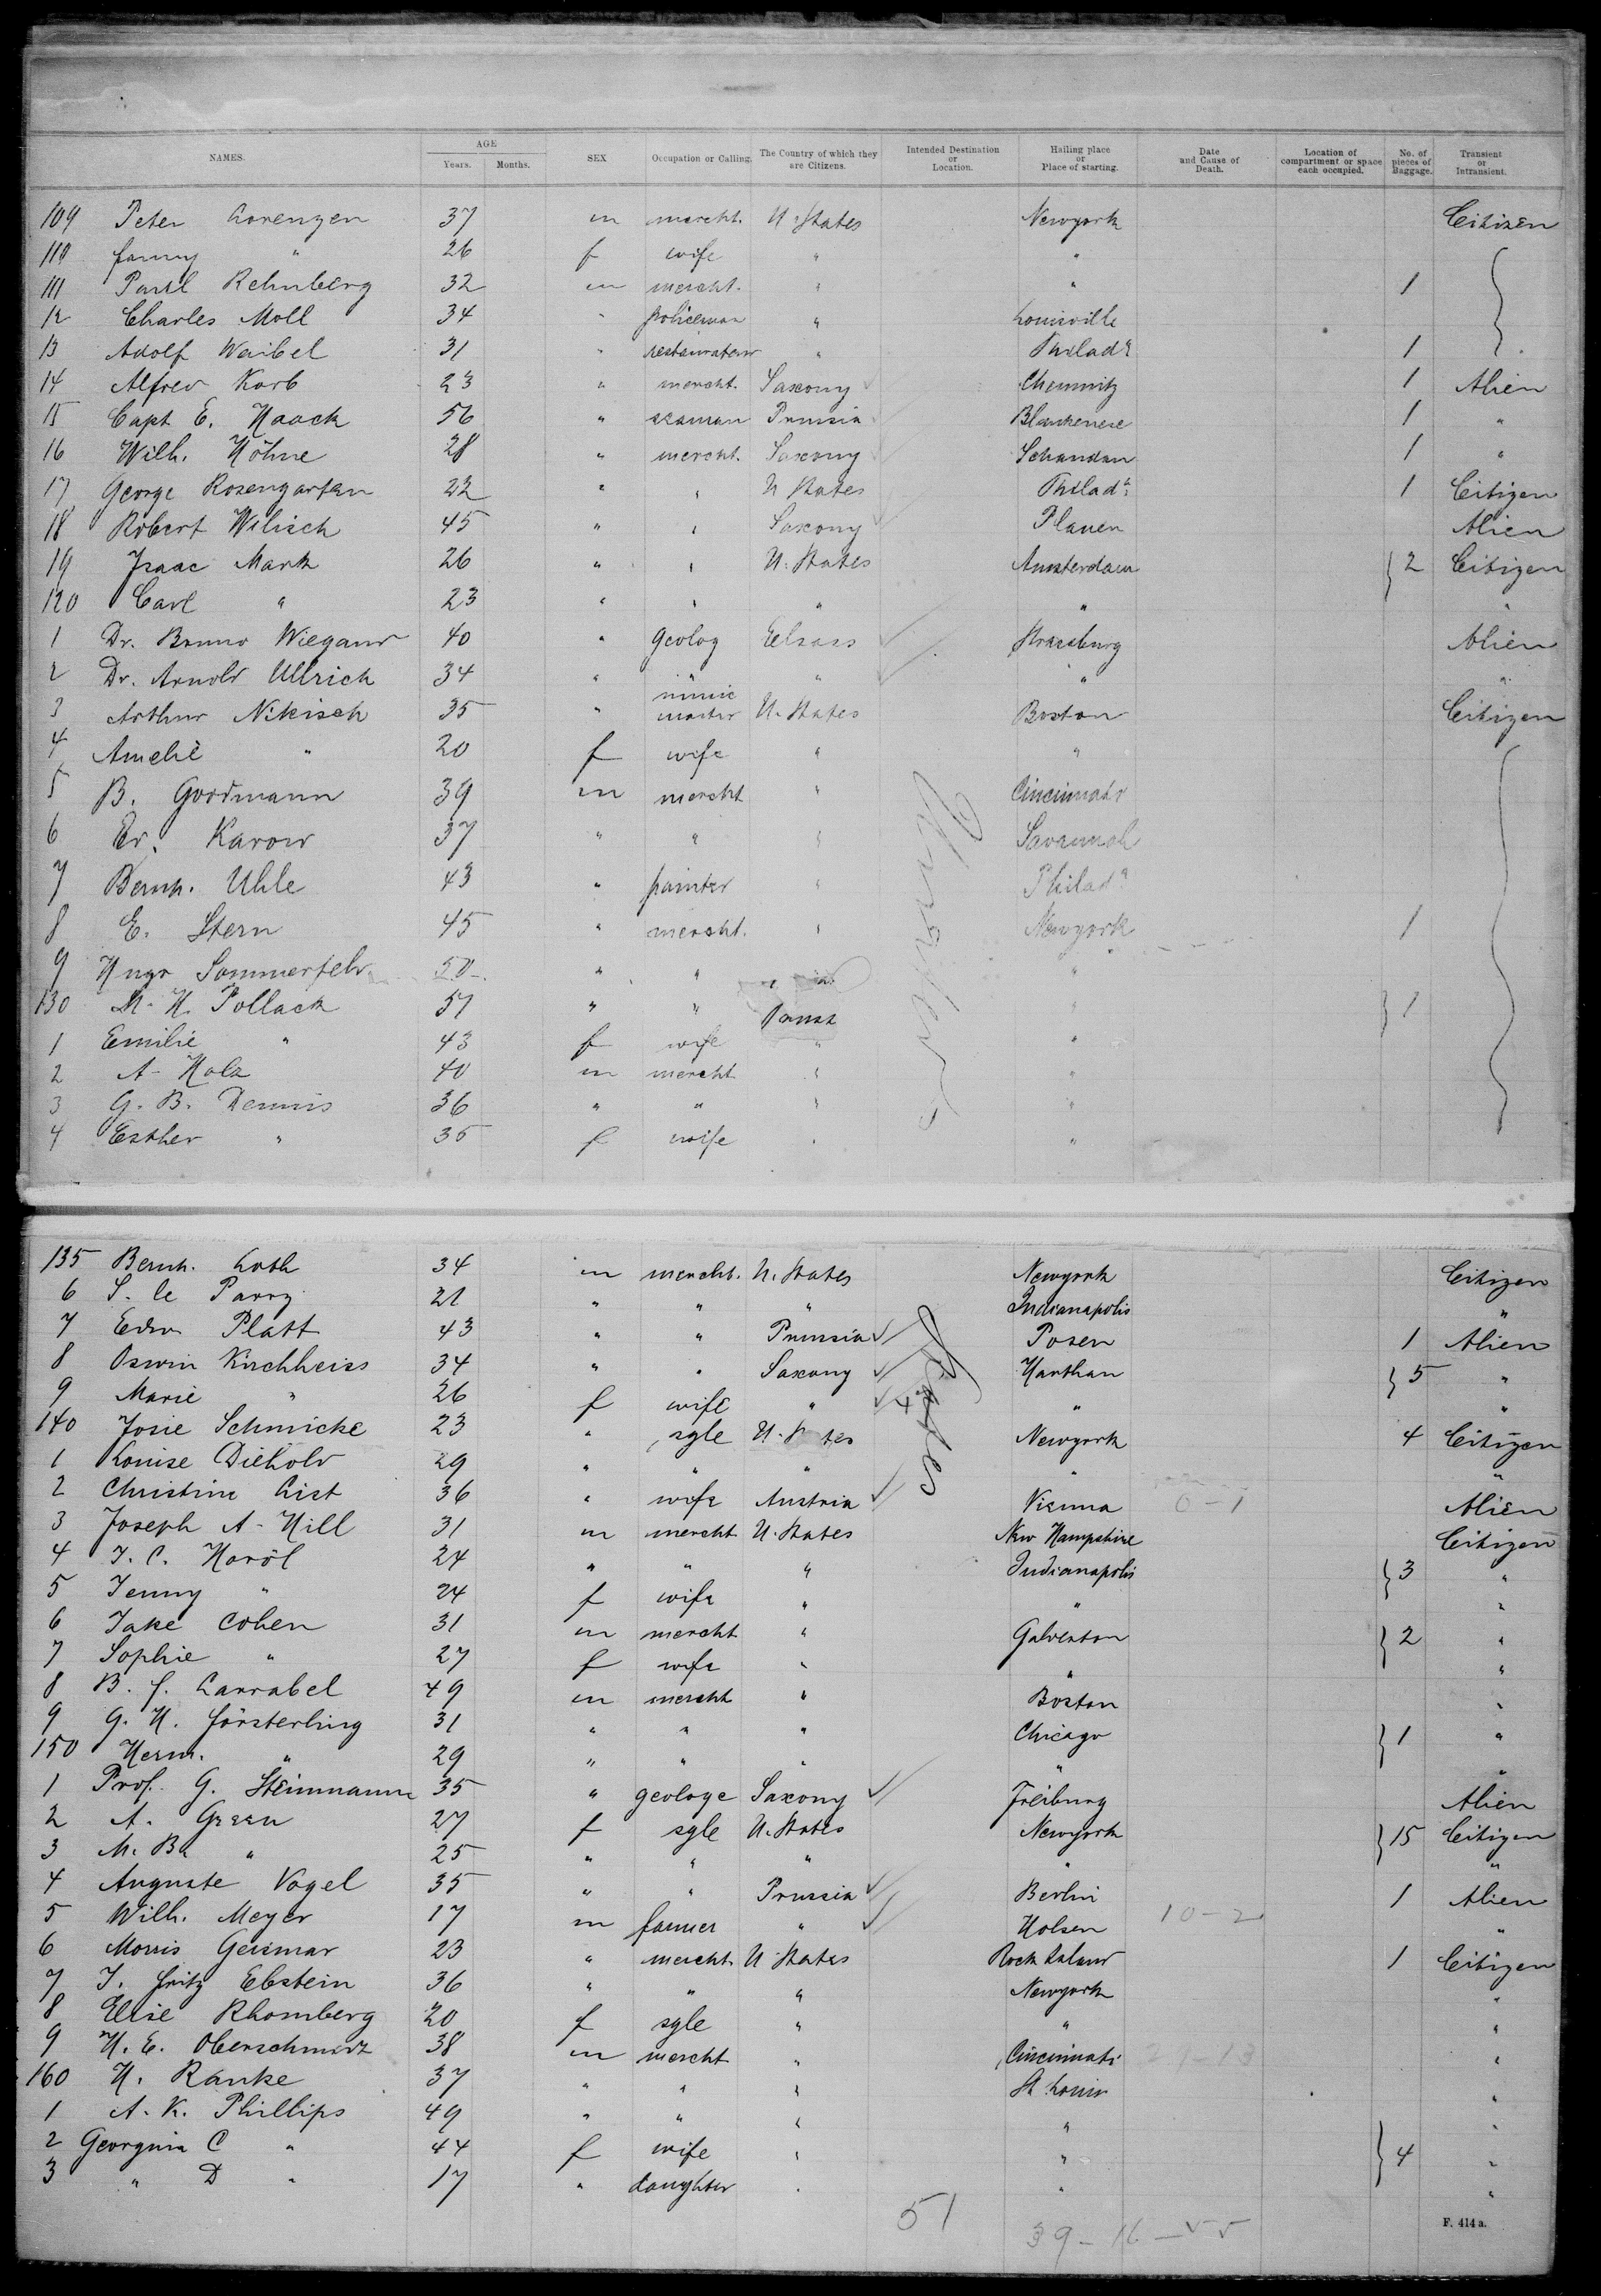 NAMES. AGE Years. Months. SEX Occupation or Calling. The Country of which they are Citizens. Intended Destination or Location. Hailing place or Place of starting. Date and Cause of Death. Location of compartment or space each occupied. No. of pieces of Baggage. Transient or Intransient.
109 Peter Lorenzen 37 m mercht. U. States Newyork Citizen
110 fanny " 26 f wife " "
111 Paul Rehnberg 32 m mercht. " " 1
12 Charles Moll 34 " policeman " Louisville
13 Adolf Waibel 31 " restaurateur " Philada 1
14 Alfred Korb 23 " mercht. Saxony Chemnitz 1 Alien
15 Capt E. Haack 56 " seaman Prussia Blankenese 1 "
16 Wilh. Höhne 28 " mercht. Saxony Schandau 1 "
17 George Rosengarten 22 " " U States Philada 1 Citizen
18 Robert Wilisch 45 " " Saxony Plauen Alien
19 Isaac Mark 26 " " U. States Amsterdam } 2 Citizen
120 Carl " 23 " " " " "
1 Dr. Bruno Wiegand 40 " geolog Eelsass Strassburg Alien
2 Dr. Arnold Ullrich 34 " " " " "
3 Arthur Nikisch 35 " music master U. States Boston Citizen
4 Amelie " 20 f wife " "
5 B. Goodmann 39 m mercht " Cincinnati
6 Ed. Karow 37 " " " Savannah
7 Bernh. Uhle 43 " painter " Philada
8 E. Stern 45 " mercht. " Newyork 1
9 Hugo Sommerfeld 50 " " "
130 M. H. Pollack 57 " " " } 1
1 Emilie " 43 f wife " "
2 A. Holz 40 m mercht " "
3 G. B. Dennis 36 " " " "
4 Esther " 35 f wife " "
135 Bernh. Loth 34 m mercht. U. States Newyork Citizen
6 S. le Parry 21 " " " Indianapolis "
7 Edw Platt 43 " " Prussia Posen 1 Alien
8 Oswin Kirchheiss 34 " " Saxony Harthau } 5 "
9 Marie " 26 f wife " " "
140 Josie Schmicke 23 " sgle U. States Newyork 4 Citizen
1 Louise Diehold 29 " " " " "
2 Christine List 36 " wife Austria Vienna 0-1 Alien
3 Joseph A. Hill 31 m mercht U. States New Hampshire Citizen
4 J. C. Haröl 24 " " " Indianapolis } 3 "
5 Jenny " 24 f wife " " "
6 Jake Cohen 31 m mercht " Galveston } 2 "
7 Sophie " 27 f wife " " "
8 B. f. Larrabel 49 m mercht " Boston "
9 G. H. försterling 31 " " " Chicago } 1 "
150 Herm. " 29 " " " " "
1 Prof. G. Steinmann 35 " geologe Saxony Freiburg Alien
2 A. Green 27 f sgle U. States Newyork } 15 Citizen
3 M. Ba " 25 " " " " "
4 Auguste Vogel 35 " " Prussia Berlin 1 Alien
5 Wilh. Meyer 17 m farmer " Holsen 10-2 "
6 Morris Geismar 23 " mercht U. States Rock Island 1 Citizen
7 J. fritz Ebstein 36 " " " Newyork "
8 Elise Rhomberg 20 f sgle " " "
9 H. E. Oberschmidt 38 m mercht " Cincinnati "
160 H. Ranke 37 " " " St Louis "
1 A. K. Phillips 49 " " " " "
2 Georgina C " 44 f wife " " } 4 "
3 " D " 17 " daughter " " "
51
39-16-
F. 414 a.